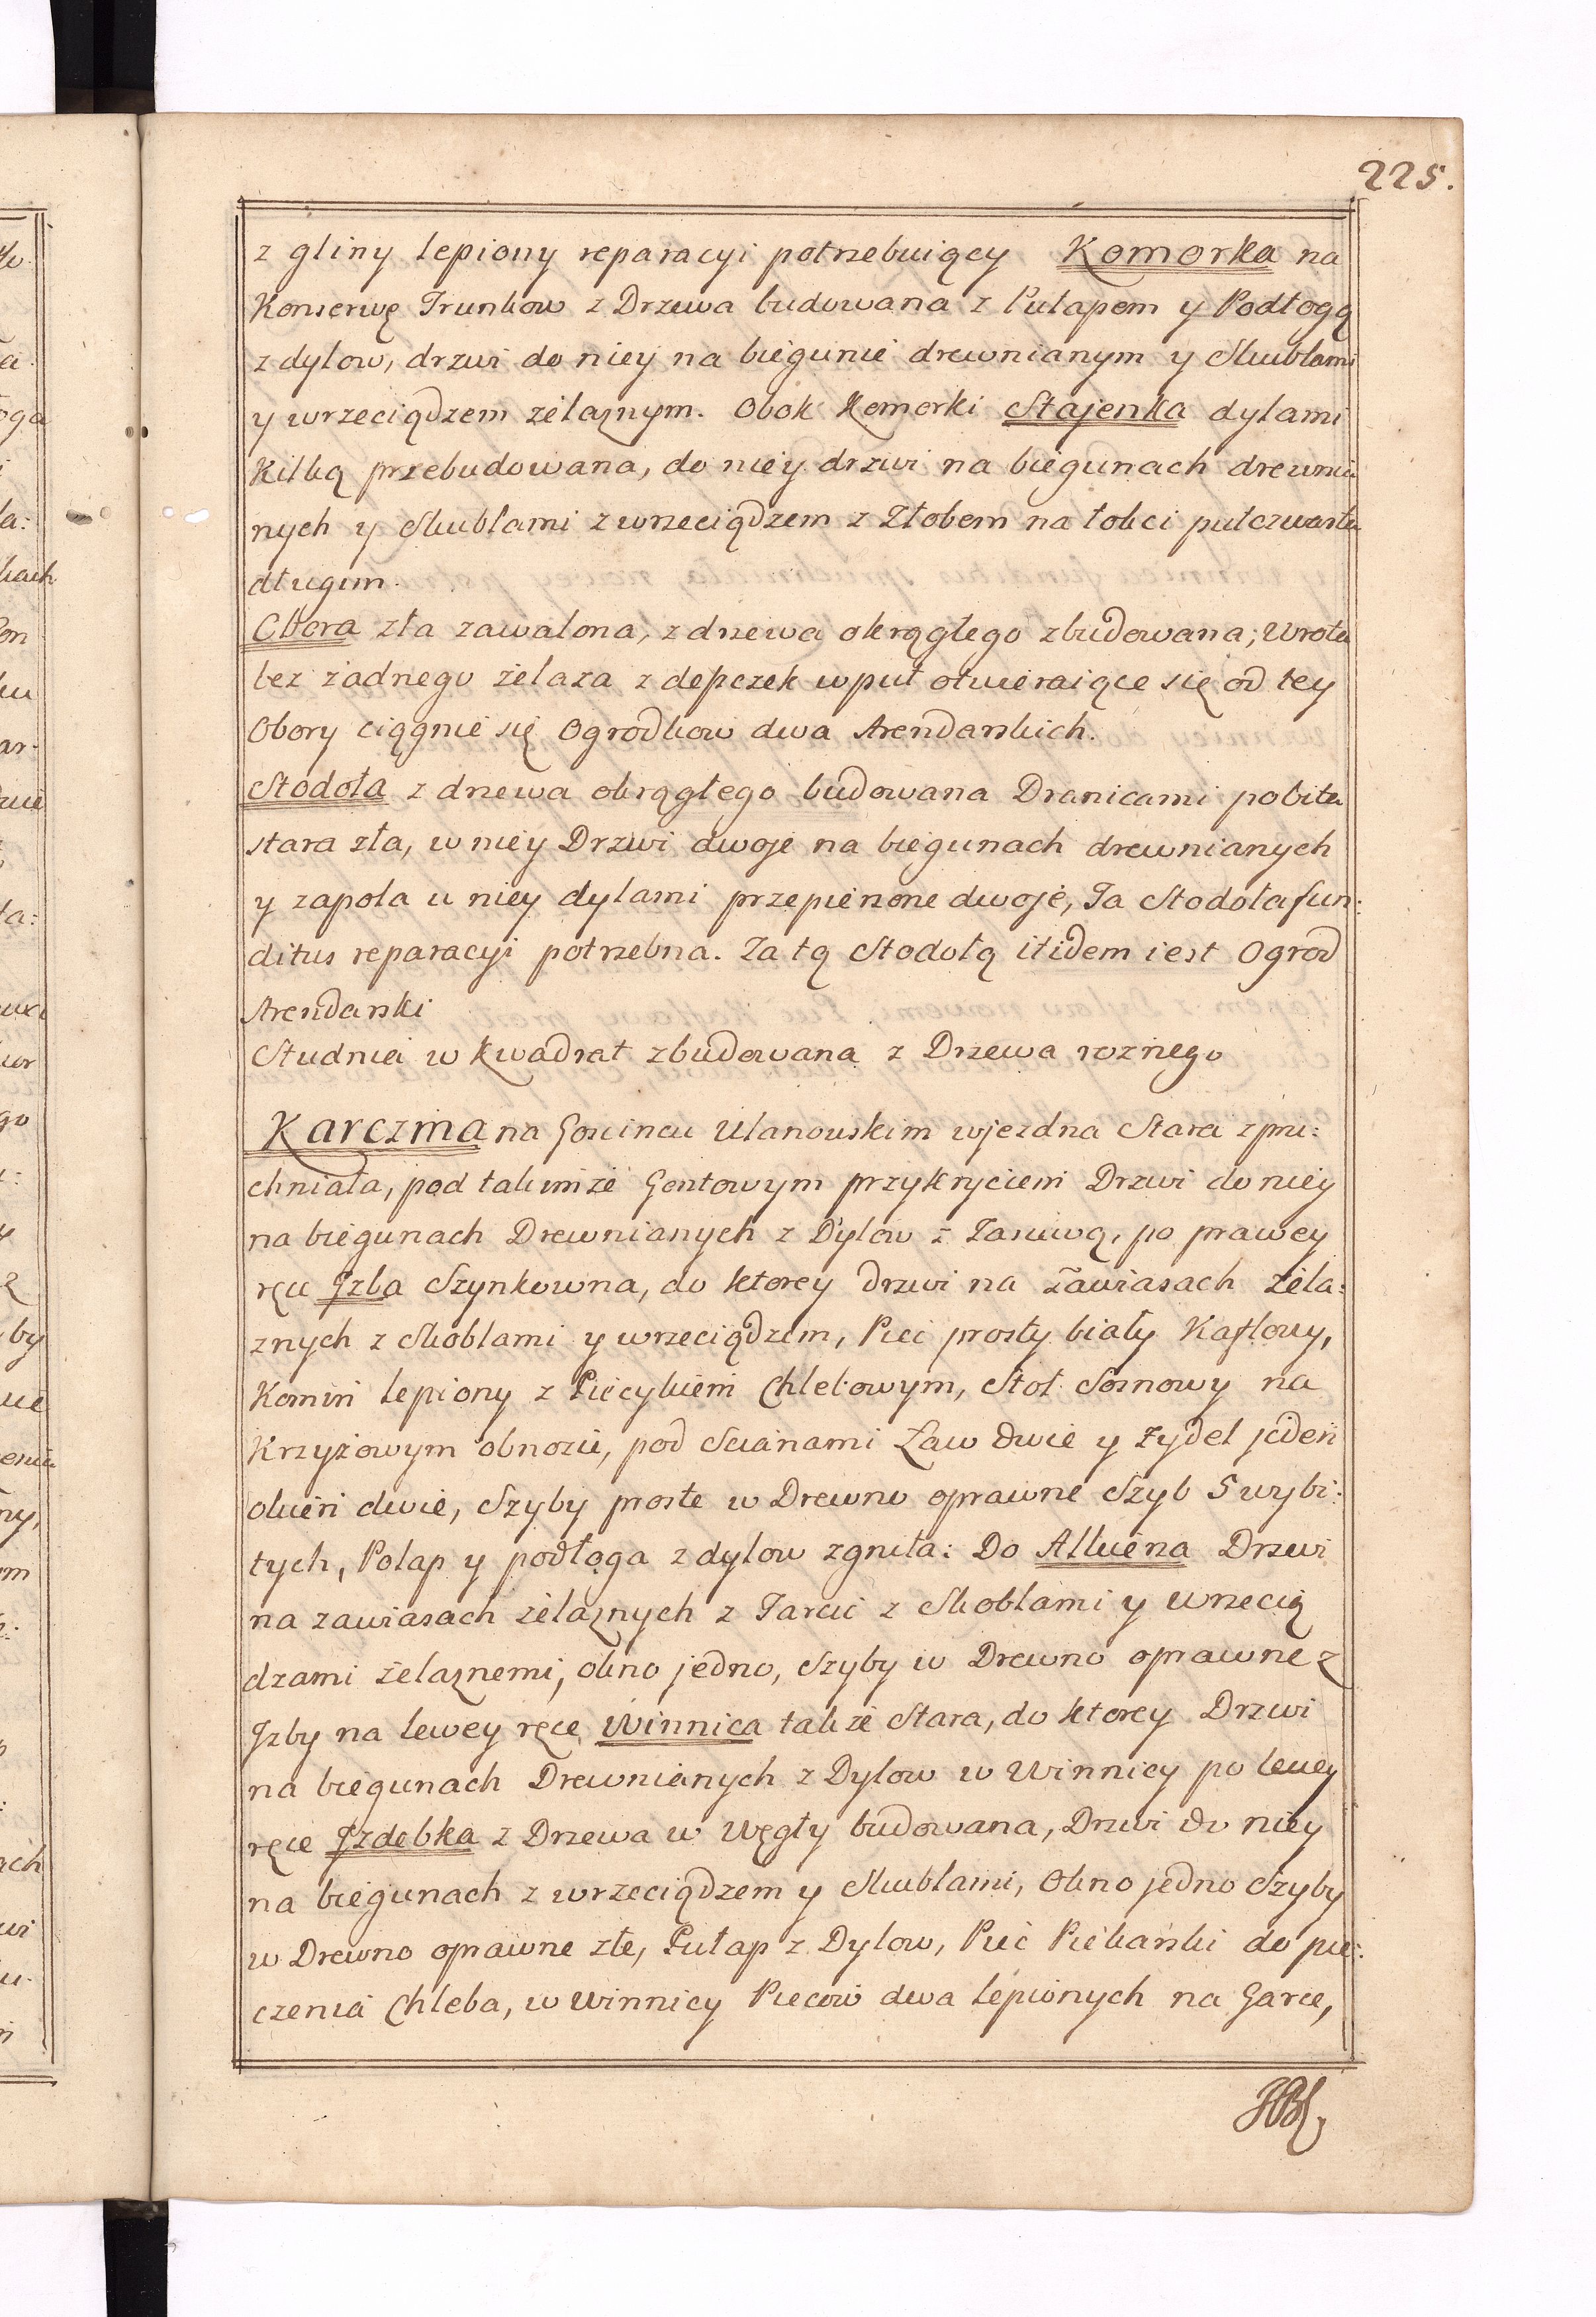 225.
z gliny lepiony reparacyi potrzebuiący Komorka na
Konserwę Trunkow z Drzewa budowana z Pułapem y Podłogą
z dylow, drzwi do niey na biegunie drewnianym y Skublami
y wrzeciądzem żelaznym. Obok Komorki Stajenka dylami
kilką przebudowana, do niey drzwi na biegunach drewnia
nych y Skublami z wrzeciądzem z Złobem na łokci pułczwarta
długim.
Obora zła zawalona, z drzewa okrągłego zbudowana; Wrota
bez żadnego żelaza z depczek wpuł otwieraiące się od tey
Obory ciągnie się Ogrodkow dwa Arendarskich.
Stodoła z drzewa okrągłego budowana Dranicami pobita
stara zła, w niey Drzwi dwoje na biegunach drewnianych
y zapola u niey dylami przepierzone dwoje, Ta Stodoła fun:
ditus reparacyi potrzebna. Za tą Stodołą itidem iest Ogrod
Arendarski
Studnia w Kwadrat zbudowana z Drzewa roznego
Karczma na Goscincu Ulanowskim wjezdna Stara zpru:
chniała, pod takimże Gontowym przykryciem Drzwi do niey
na biegunach Drewnianych z Dylow z Zasuwą, po prawey
ręce Jzba Szynkowna, do ktorey drzwi na zawiasach żela:
znych z Skoblami y wrzeciądzem, Piec prosty biały Kaflowy,
Komin lepiony z Piecykiem Chlebowym, Stoł Sosnowy na
Krzyżowym obnoziu, pod Scianami Ław dwie y Zydel jeden
okien dwie, Szyby proste w Drewno oprawne Szyb 5 wybi:
tych, Polap y podłoga z dylow zgniła: Do Alkierza Drzwi
na zawiasach żelaznych z Tarcic z Skoblami y wrzecią
dzami żelaznemi, okno jedno, Szyby w Drewno oprawne z
Jzby na lewey ręce Winnica także Stara, do ktorey Drzwi
na biegunach Drewnianych z Dylow w Winnicy po lewey
ręce Jzdebka z Drzewa w Węgły budowana, Drzwi do niey
na biegunach z wrzeciądzem y Skublami, Okno jedno Szyby
w Drewno oprawne złe, Pułap z Dylow, Piec Piekarski do pie:
czenia Chleba, w Winnicy Piecow dwa lepionych na Garce,